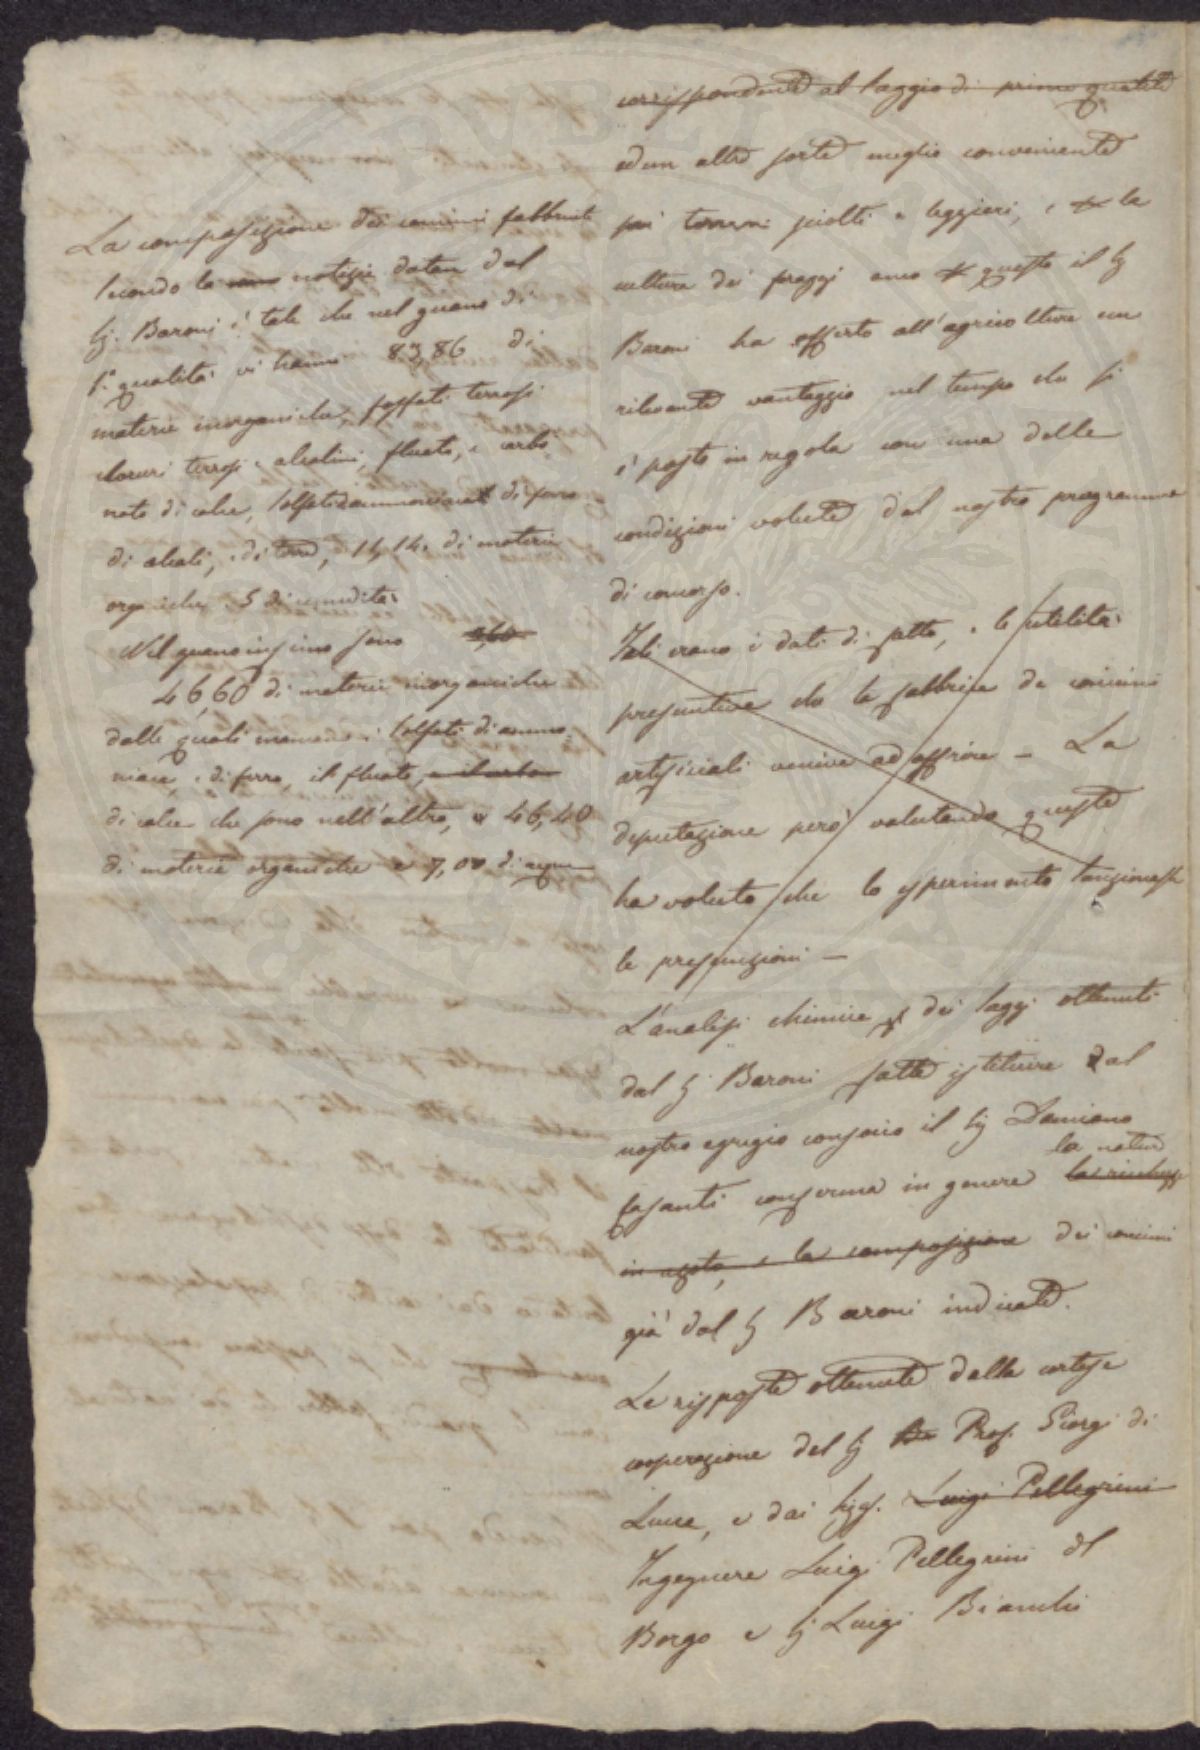 La composizione dei concimi fabbricati
secondo le notizie datene dal
Sig. Baroni è tale che nel guano di
1.a qualità vi hanno 83,86 di
materie inorganiche, fosfati terrosi
cloruri terrosi e alcalini, fluato, e carbo
nato di calce, solfati d'ammoniaca di ferro
di alcali, e di terre, 11,14. di materie
organiche 5 di umidità
Nel guano infimo sono
46,60 di materie inorganiche
dalle quali mancano i solfati di ammo
niaca, e di ferro, il fluato, e il carbo
di calce che sono nell'altro, e 46,40
di materie organiche e 7,00 di acqua
corrispondente al saggio di prima qualità
ed un altra sorte meglio conveniente
pei terreni sciolti e leggieri, e la
cultura dei anco questo il Sig
Baroni ha offerto all'agricoltura un
rilevante vantaggio nel tempo che si
è posto in regola con una delle
condizioni volute dal nostro programma
di concorso.
Tali erano i dati di fatto, e le utilità
presuntive che la fabbrica de concimi
artificiali veniva ad offrire - La
deputazione però valutando queste
ha voluto che lo sperimento sanzionasse
le presunzioni -
L'analisi chimica dei saggi ottenuti
dal Sig Baroni fatta istituire dal
nostro egregio consocio il Sig Damiano
la natura
Casanti conferma in genere la ricchezza
in azoto, e la composizione dei concimi
già dal Sig Baroni indicate.
Le risposte ottenute dalla cortese
cooperazione del Sig Prof. Giorgi di
Lucca, e dai Sigg. Luigi Pellegrini
Ingegnere Luigi Pellegrini del
Borgo e Sig Luigi Bianchi